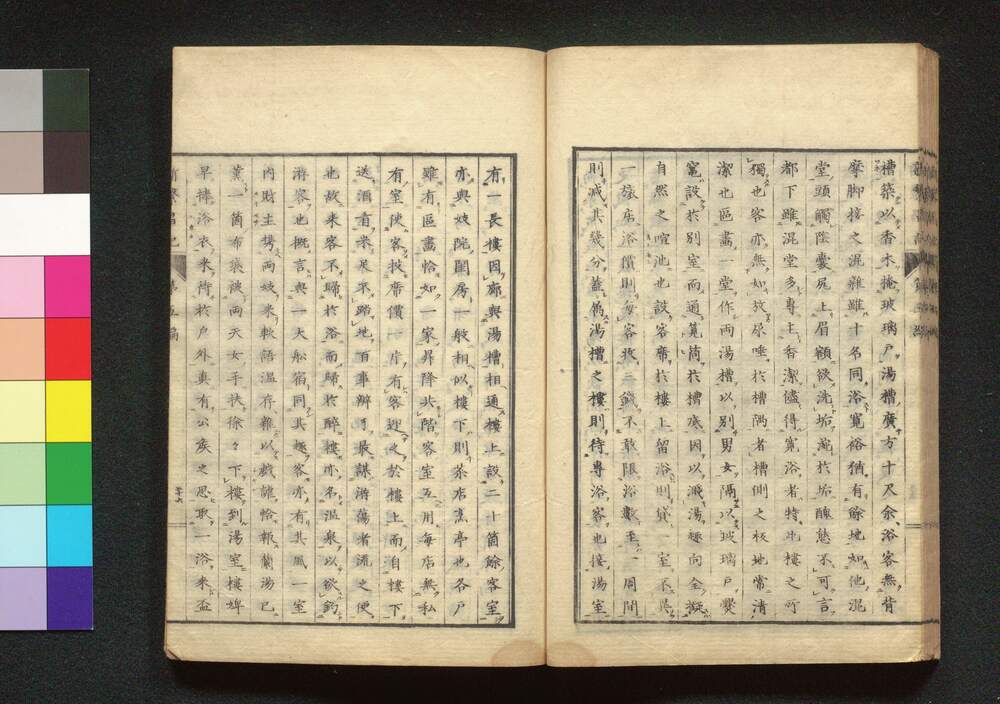 槽築以香木掩玻璃戸湯槽廣方十尺余浴客無背
摩脚接之混雜雖十名同浴寛裕猶有餘地如他混
堂頭觸陰嚢尻上眉額欲洗垢麁於垢醜態不可言
都下雖混堂多專主香潔儘得寛浴者特此樓之所
獨也客亦無如放尿唾於槽隅者槽側之板地常清
潔也區畫一堂作両湯槽以別男女隔以玻璃戸爨
竃設於別室而通筧筒於槽底因以溉湯趣向全擬
自然之喧池也設客席於樓上留浴則貸一室不異
一旅店浴價則每客投三錢不敢限浴數至一周間
則減其幾分蓋傍湯槽之樓則待專浴客也接湯室
有一長樓因廊與湯槽相通樓上設二十箇餘客室
亦與妓院閨房一般相似樓下則茶店烹亭也各戸
雖有區畫恰如一家昇降共階客室互用每店無私
有室使客投席價一片有客迎之於樓上而自樓下
送酒肴來菜不踏地百事辨了最謀游蕩者流之便
也故来客不歸於浴而歸於醉樓亦名温泉以欲釣
游客也概言與一大船宿同其趣客亦有其風一室
内財主携両妓来軟語温存雜以戯謔恰報蘭湯已
熏一箇布褒後両天女手扶徐々下樓到湯室樓婢
早捧浴衣来待於戸外真有公侯之思取一浴来盃